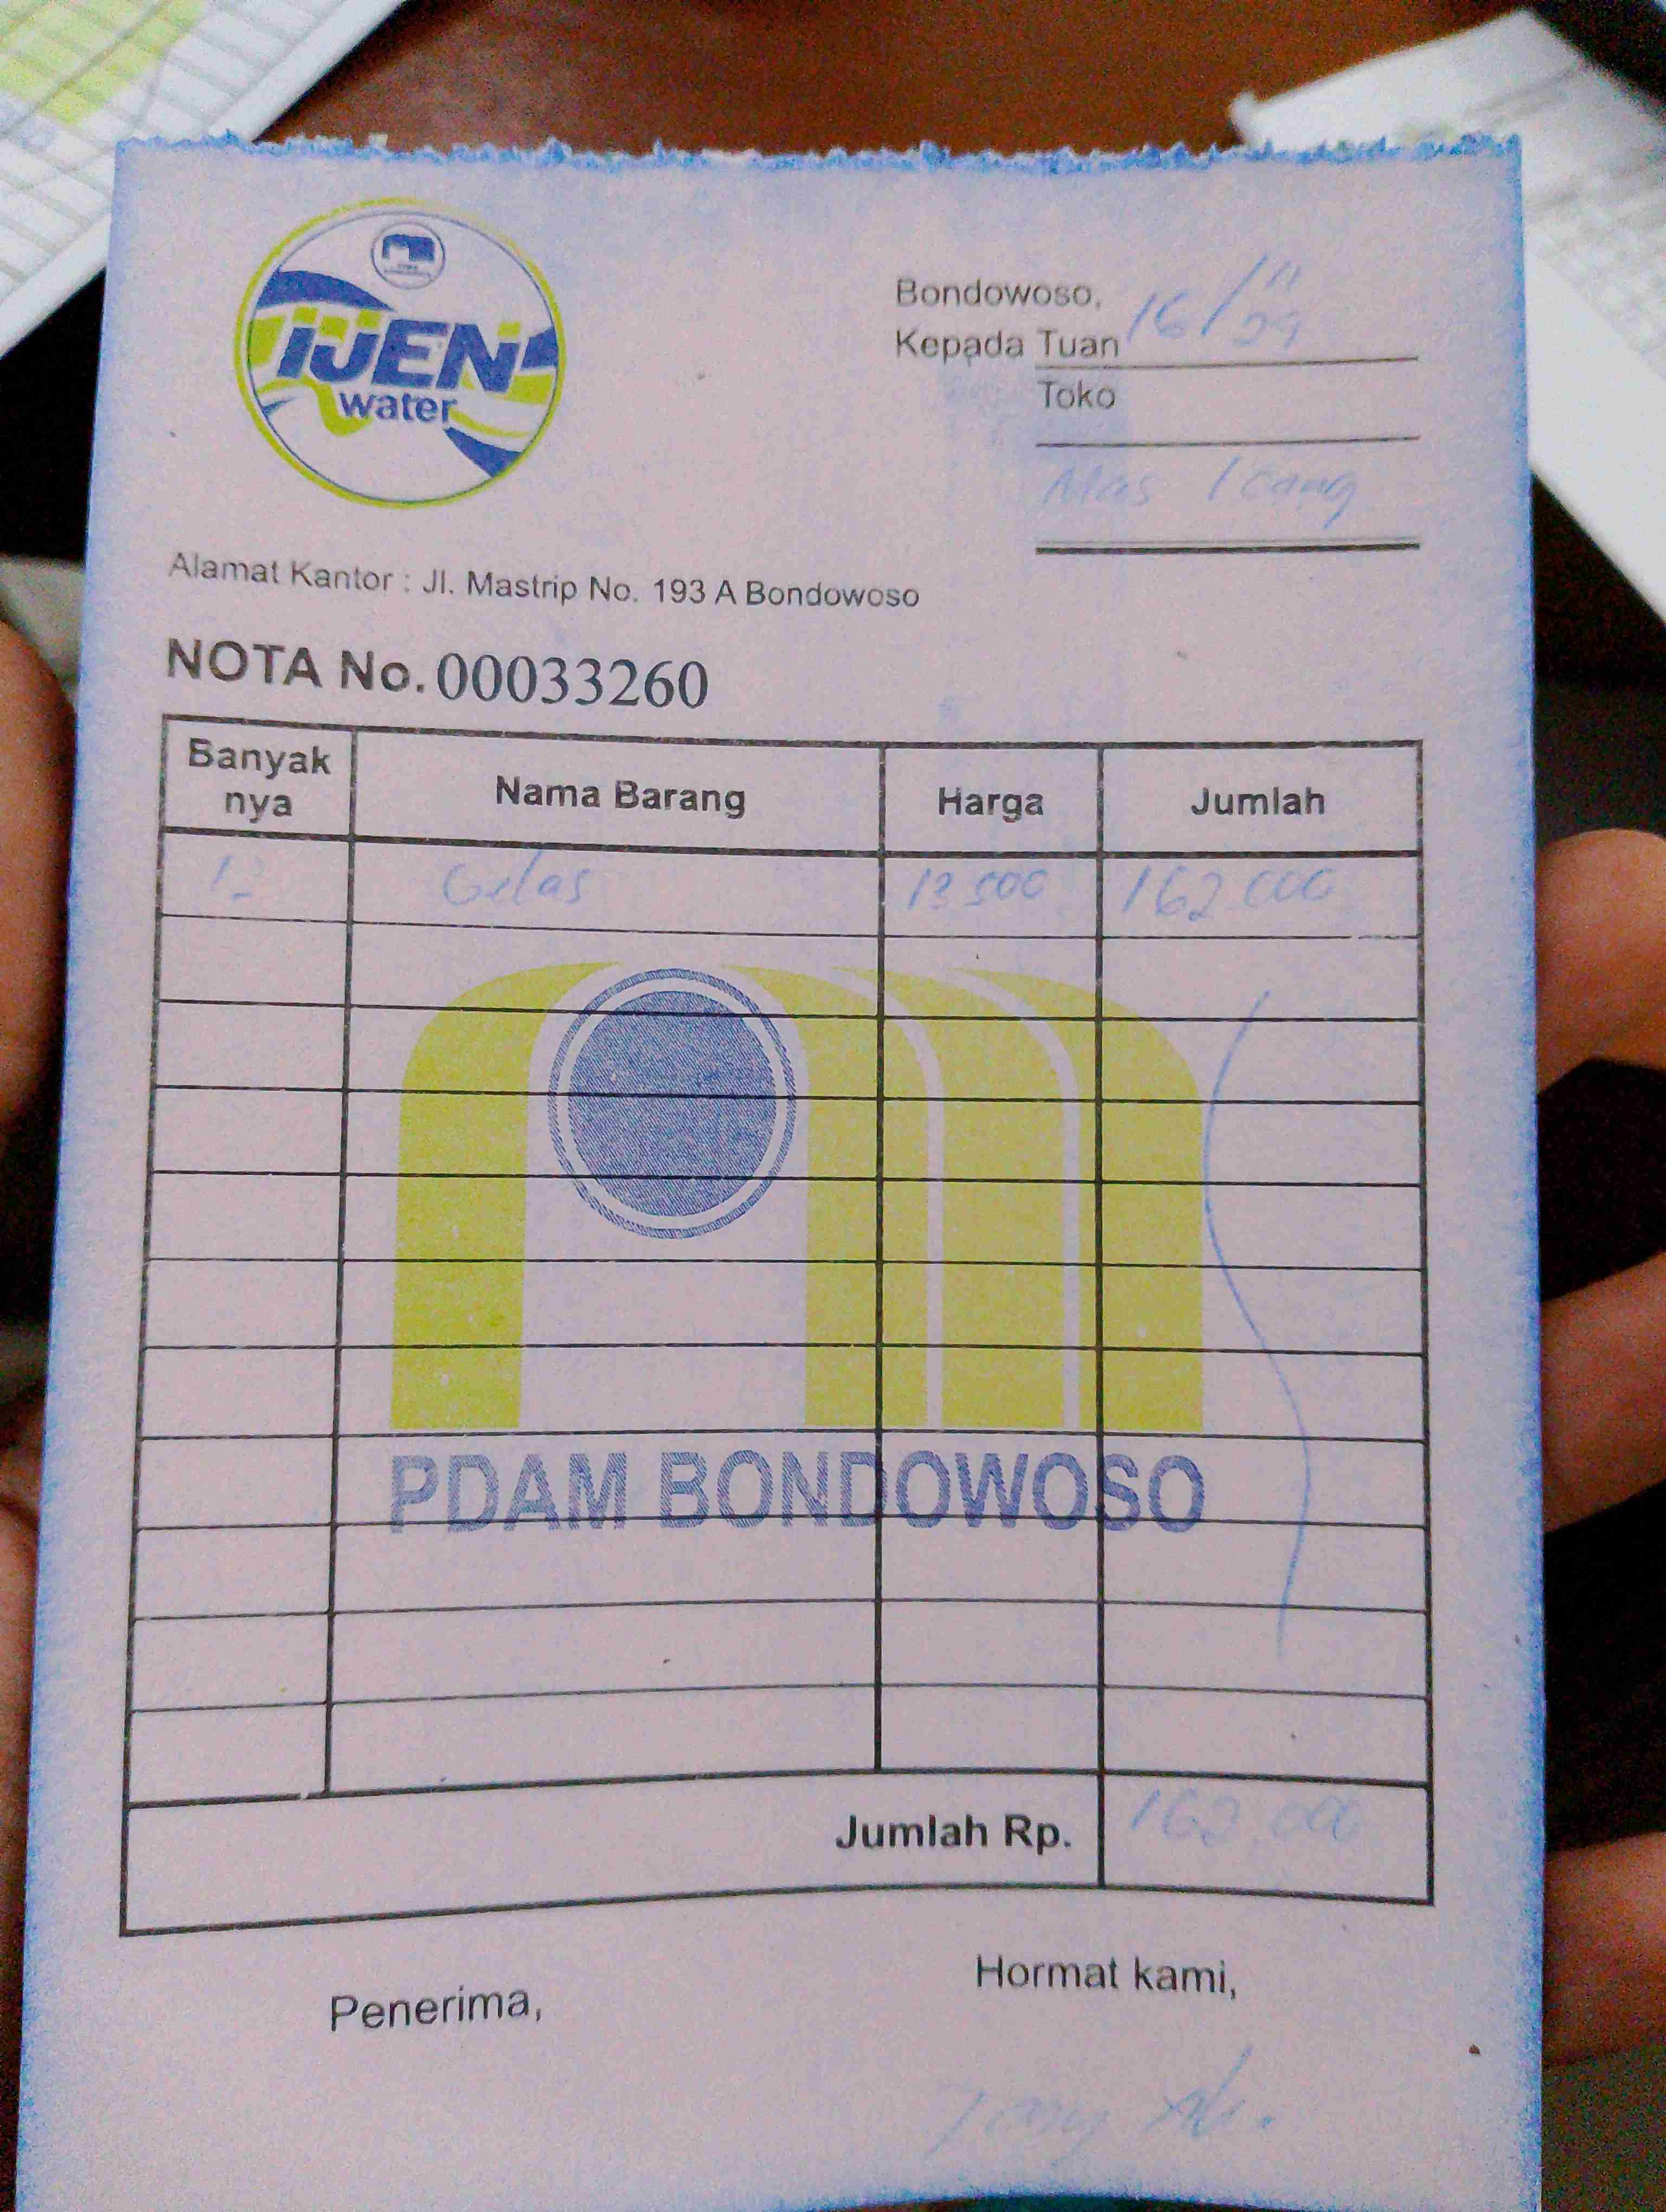 IJEN
water
Bondowoso, 16/11
Kepada Tuan
Toko
Mas Icang
Alamat Kantor : Jl. Mastrip No. 193 A Bondowoso
NOTA No. 00033260
Banyak nya Nama Barang Harga Jumlah
12 Gelas 13.500 162.000
PDAM BONDOWOSO
Jumlah Rp. 162.000
Penerima, Hormat kami,